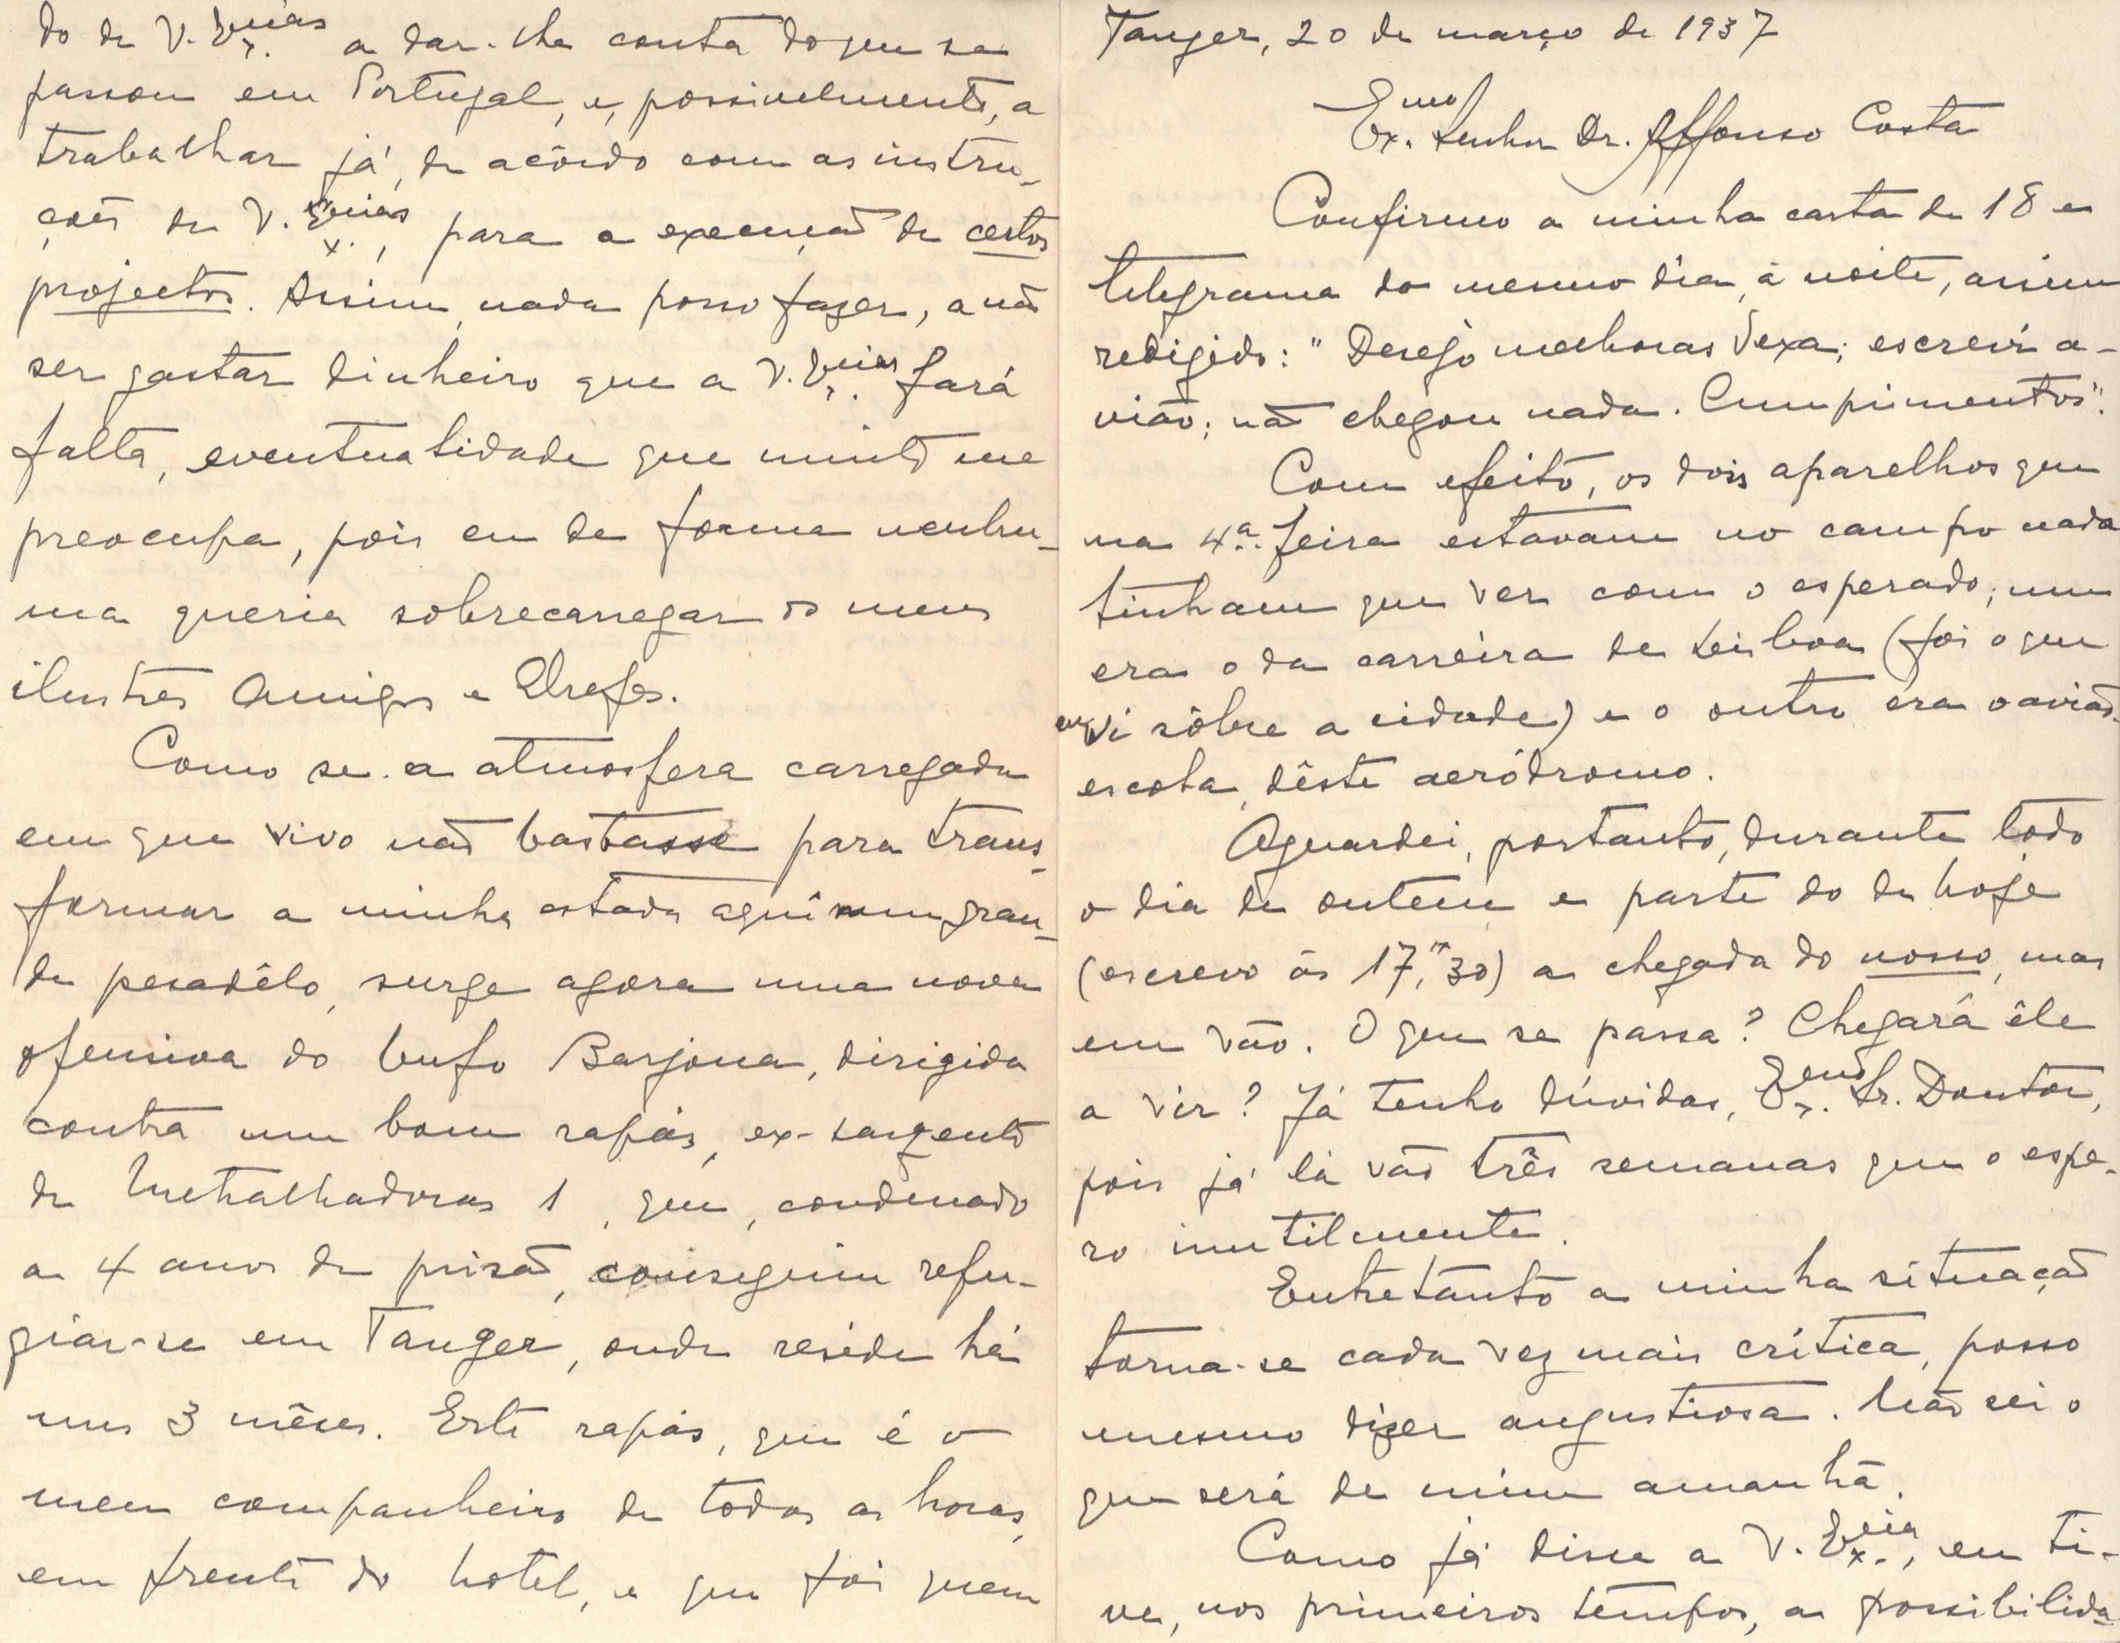 Tanger, 20 de março de 1937
Exmo. Senhor Dr. Affonso Costa
Confirmo a minha carta de 18 e
telegrama do mesmo dia, á noite, assim
redigido: "Desejo melhoras Vexa; escrevi a-
vião; não chegou nada. Cumprimentos".
Com efeito, os dois aparelhos que
na 4ª. feira estavam no campo nada
tinham que ver com o esperado; um
era o da carreira de Lisboa (foi o que
eu vi sôbre a cidade) e o outro era o avião-
escola, dêste aeródromo.
Aguardei, portanto, durante todo
o dia de ontem e parte do de hoje
(escrevo ás 17,h 30) a chegada do nosso, mas
em vão. O que se passa? Chegará êle
a vir? Já tenho dúvidas, Exmo. Sr. Doutor,
pois já lá vão três semanas que o espe-
ro inutilmente.
Entretanto a minha situação
torna-se cada vez mais crítica, posso
mesmo dizer angustiosa. Não sei o
que será de mim amanhã.
Como já disse a V. Excia., eu ti-
ve, nos primeiros tempos, a possibilida-
do de V. Excias. a dar-lhe conta do que se
passou em Portugal, e, possivelmente, a
trabalhar já, de acôrdo com as instru-
ções de V. Excias., para a execução de certos
projectos. Assim, nada posso fazer, a não
ser gastar dinheiro que a V. Excias. fará
falta, eventualidade que muito me
preocupa, pois eu de forma nenhu-
ma queria sobrecarregar os meus
ilustres Amigos e Chefes.
Como se a atmosfera carregada
em que vivo não bastasse para trans-
formar a minha estada aqui num gran-
de pesadêlo, surge agora uma nova
ofensiva do bufo Barjona, dirigida
contra um bom rapás, ex-sargento
de Metralhadoras 1, que, condenado
a 4 anos de prisão, conseguiu refu-
giar-se em Tanger, onde reside há
uns 3 mêses. Este rapás, que é o
meu companheiro de todas as horas,
em frente do hotel, e que foi quem